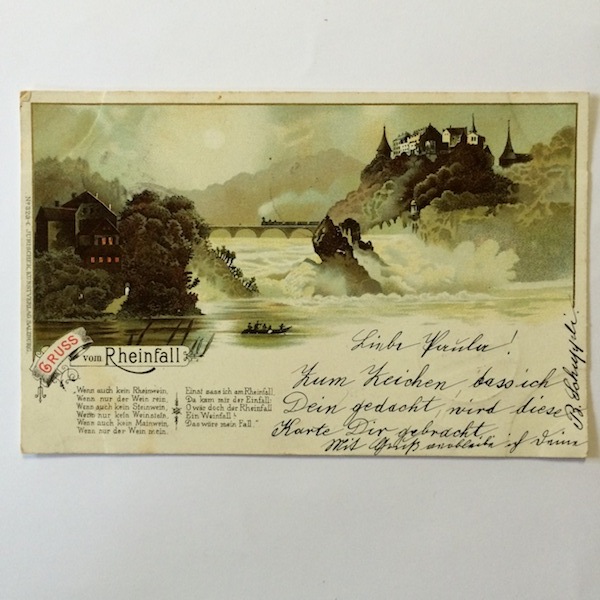 GRUSS
vom Rheinfall
Wenn auch kein Rheinwein,
Wenn nur der Wein rein,
Wenn auch kein Steinwein,
Wenn nur kein Weinstein,
Wenn auch kein Mainwein,
Wenn nur der Wein mein.
Einst sass ich am Rheinfall,
Da kam mir der Einfall:
O wär doch der Rheinfall
Ein Weinfall!
Das wäre mein Fall."
Liebe Paula!
Zum Zeichen dass ich
Dein gedacht, wird diese
Karte Dir gebracht,
Mit Gruß verbleibe ich Deine